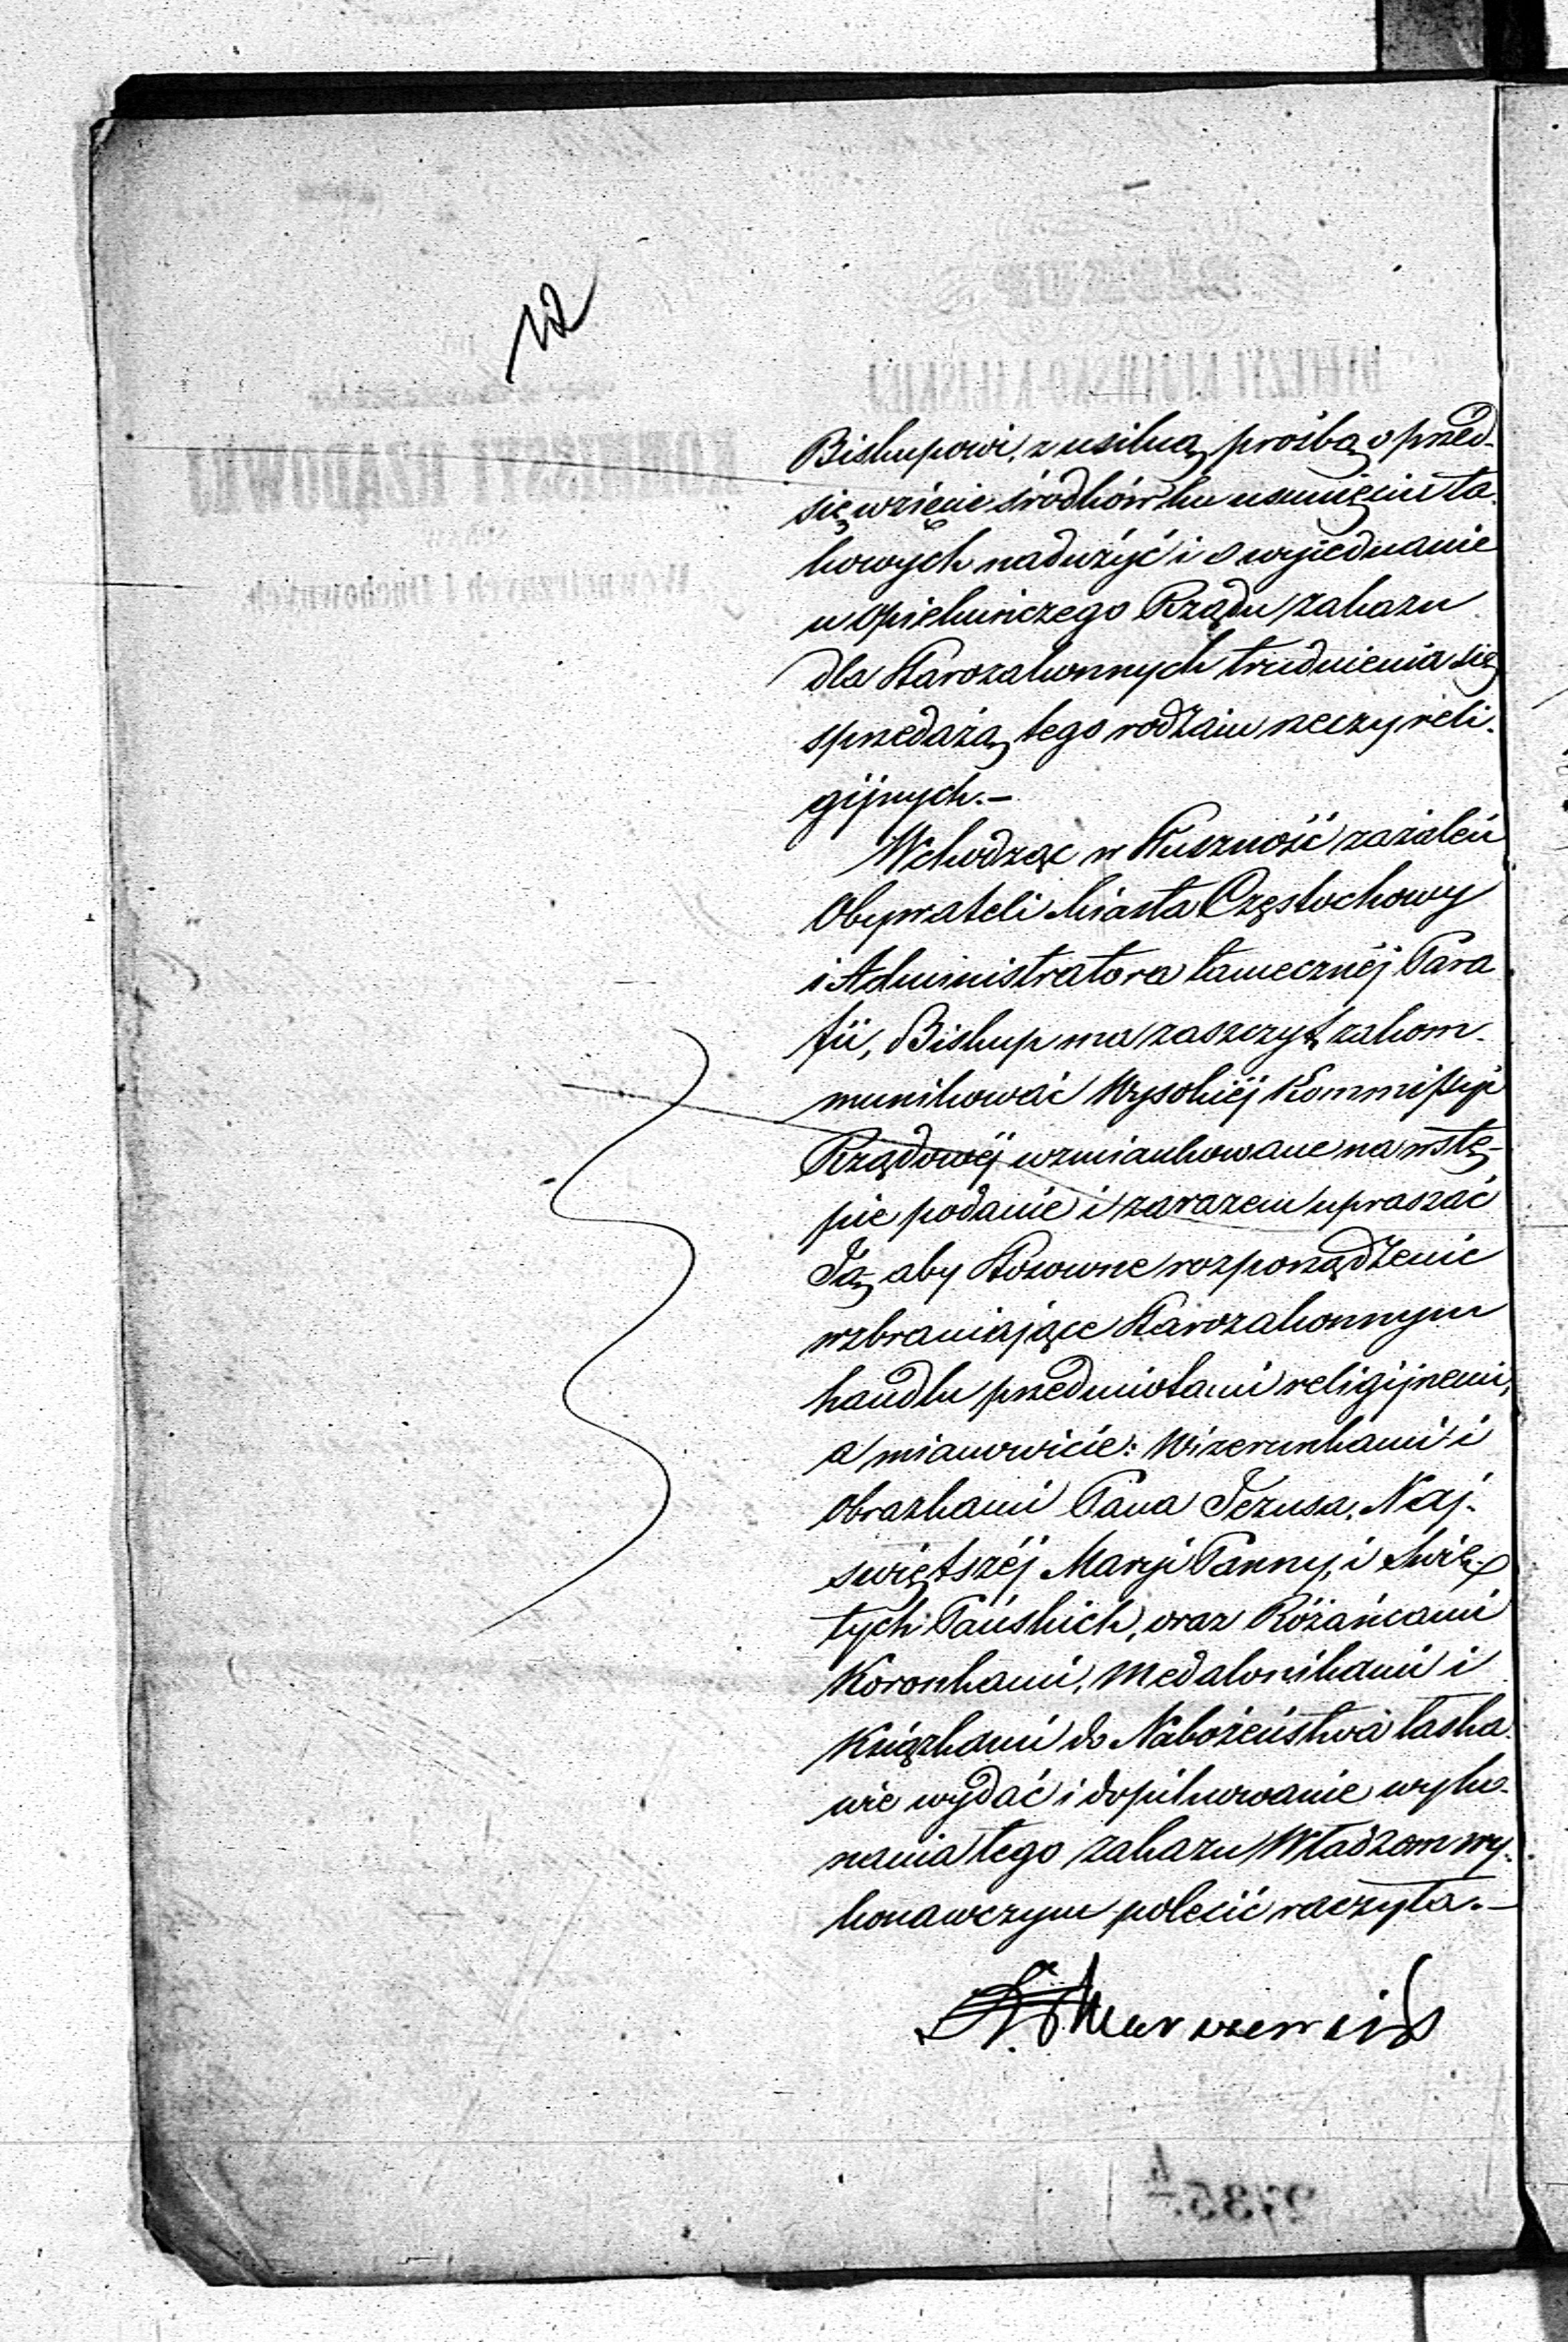 12
Biskupowi, z usilną prośbą o przed-
sięwzięcie środków ku usunięciu ta-
kowych nadużyć i o wyjednanie
u Opiekuńczego Rządu zakazu
dla Starozakonnych trudnienia się
sprzedażą tego rodzaiu rzeczy reli-
gijnych.—
Wchodząc w słuszność zażaleń
Obywateli Miasta Częstochowy
i Administratora tamecznéj Para
fii, Biskup ma zaszczyt zakom-
munikować Wysokiéj Kommissyi
Rządowéj wzmiankowane na wstę-
pie podanie i zarazem upraszać
Ją, aby stosowne rozporządzenie
wzbraniające Starozakonnym
handlu przedmiotami religijnemi,
a mianowicie: Wizerunkami i
Obrazkami Pana Jezusa, Naj-
świętszéj Maryi Panny, i Swię-
tych Pańskich, oraz Różańcami
Koronkami, Medalonikami i
Książkami do Nabożeństwa łaska-
wie wydać i dopilnowanie wyko-
nania tego zakazu Władzom wy-
konawczym polecić raczyła.—